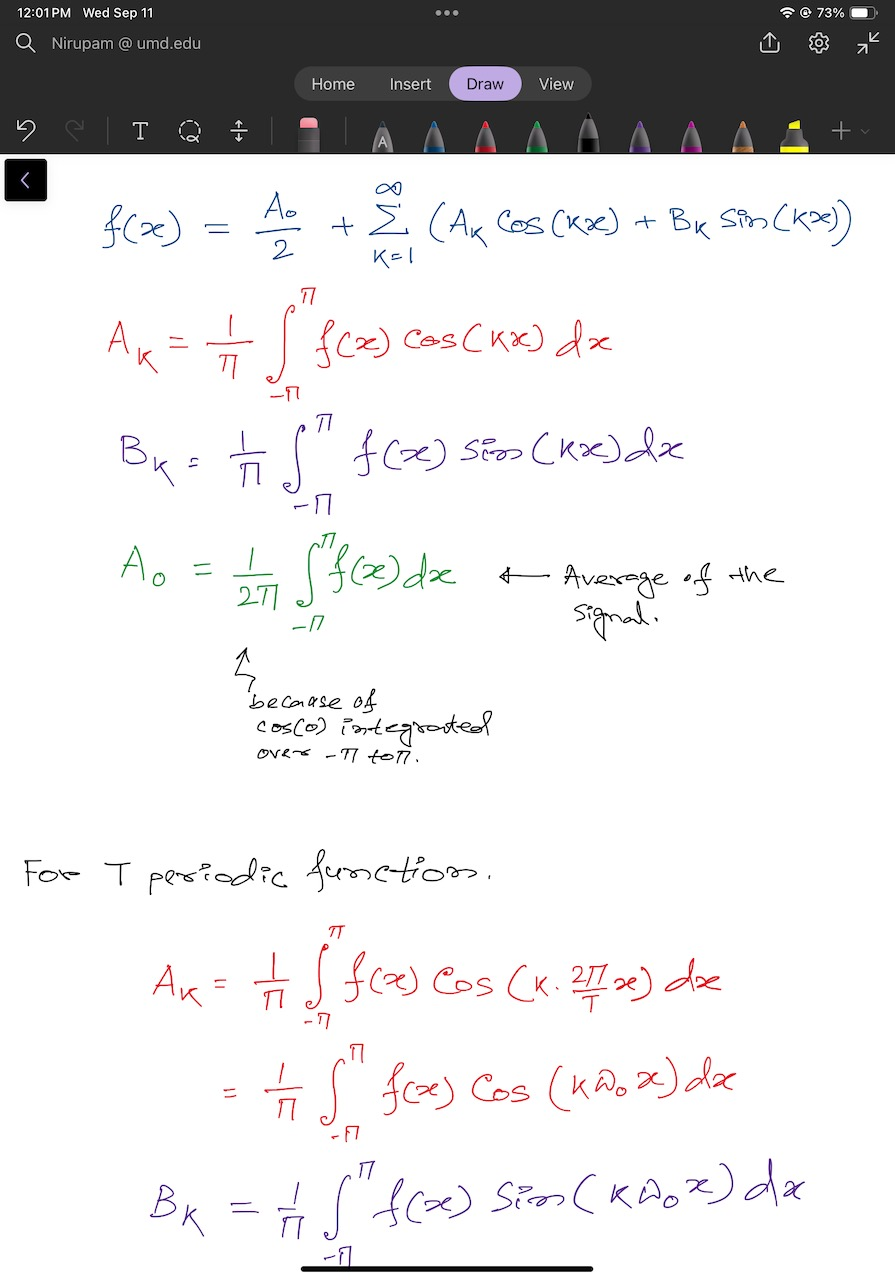 12:01 PM Wed Sep 11 73%
Nirupam @ umd.edu
Home Insert Draw View
T A
f(x) = A₀/2 + ∑_{K=1}^{∞} (A_K Cos(Kx) + B_K Sin(Kx))
A_K = 1/π ∫_{-π}^{π} f(x) Cos(Kx) dx
B_K = 1/π ∫_{-π}^{π} f(x) Sin(Kx) dx
A₀ = 1/2π ∫_{-π}^{π} f(x) dx ← Average of the
signal.
because of
cos(0) integrated
over -π to π.
For T periodic functions.
A_K = 1/π ∫_{-π}^{π} f(x) Cos(K. 2π/T x) dx
= 1/π ∫_{-π}^{π} f(x) Cos(Kω₀x) dx
B_K = 1/π ∫_{-π}^{π} f(x) Sin(Kω₀x) dx